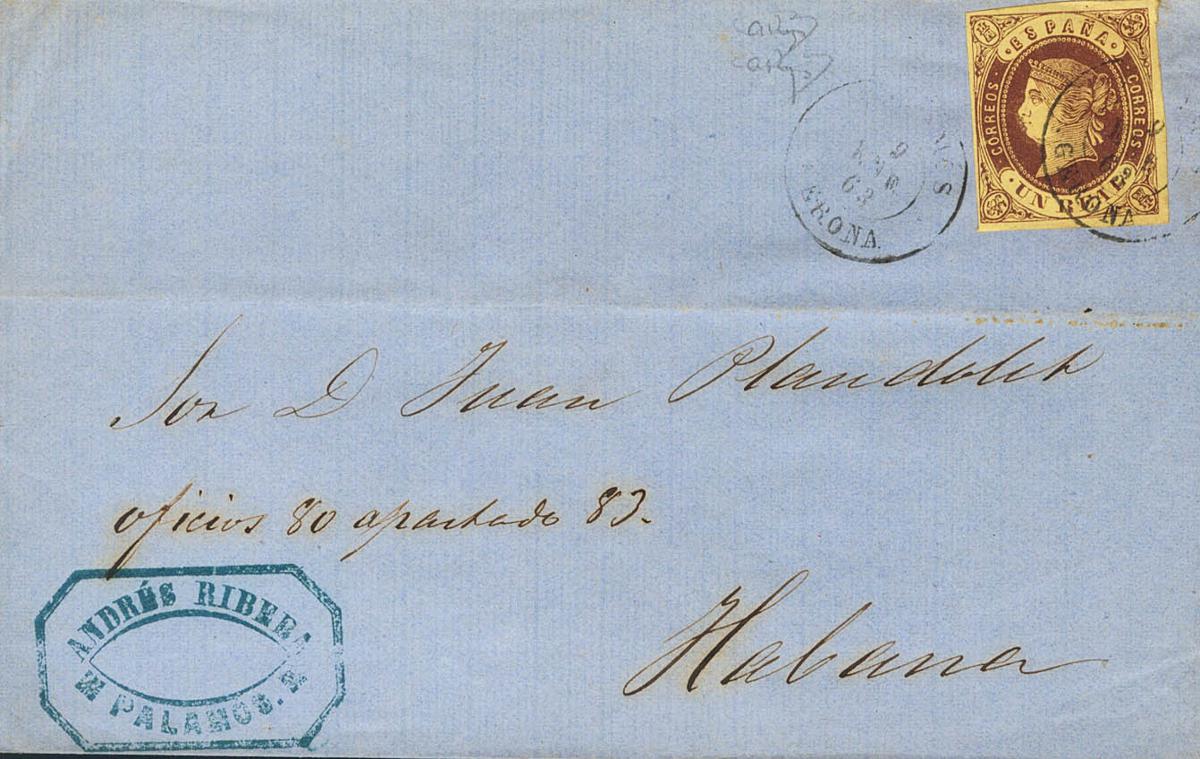 ESPAÑA
CORREOS
CORREOS
UN REAL
9
ENE
63
GERONA
GERONA
Sor D Juan Plandolit
oficios 80 apartado 83.
Habana
ANDRÉS RIBERA
PALAMOS.